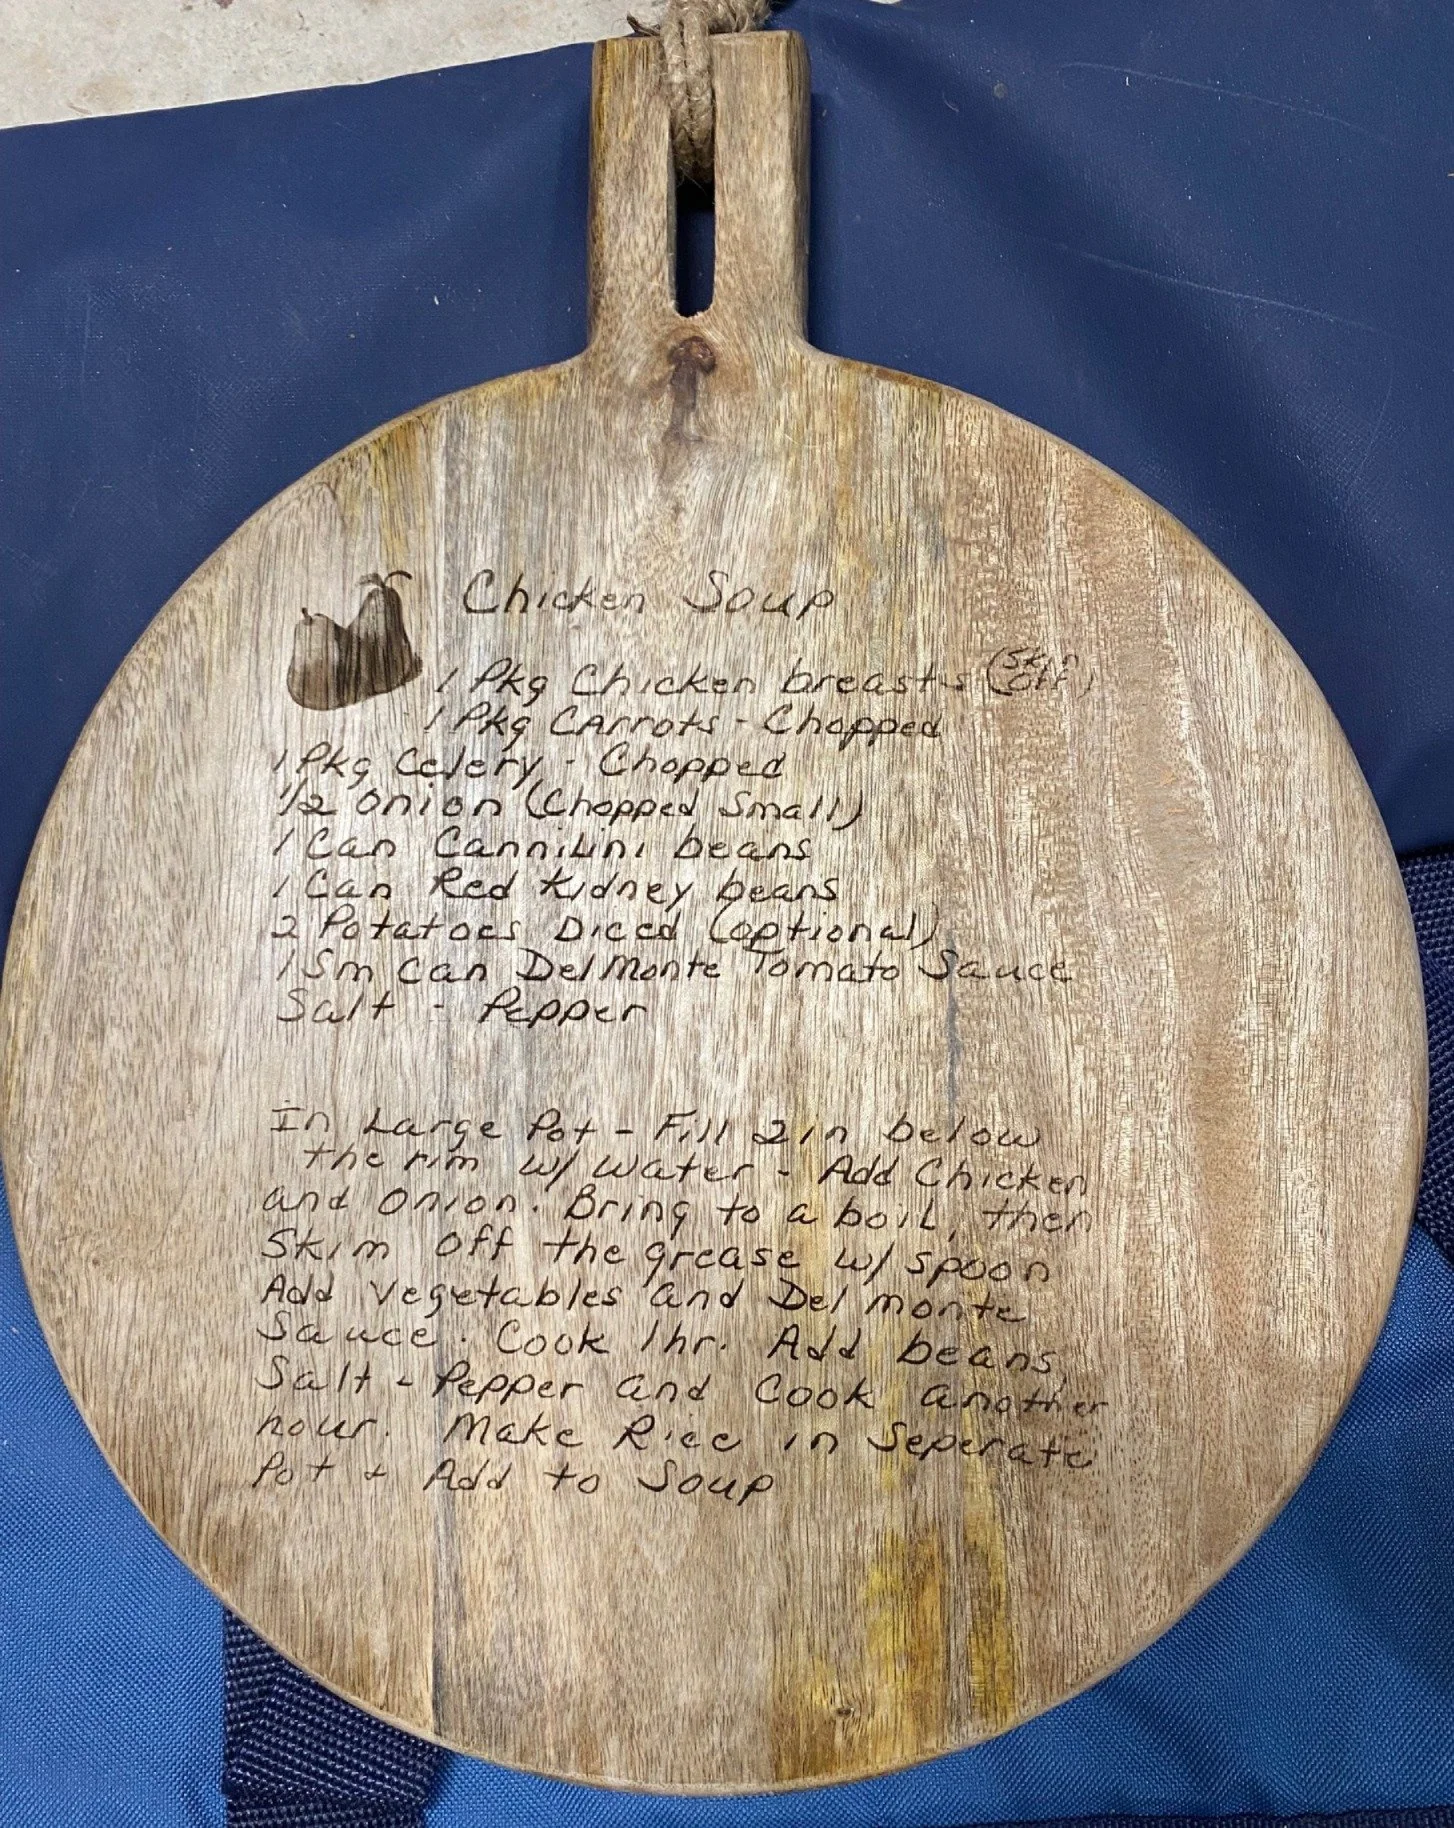 Chicken Soup
1 Pkg Chicken breasts (Skin Off)
1 Pkg CArrots - Chopped
1 Pkg Celery - Chopped
1/2 onion (Chopped Small)
1 Can Cannilini beans
1 Can Red Kidney beans
2 Potatoes Diced (optional)
1 Sm Can Del Monte Tomato Sauce
Salt - Pepper
In Large Pot - Fill 2 in below
the rim w/ water - Add Chicken
and onion. Bring to a boil, then
Skim off the grease w/ spoon
Add vegetables and Del monte
Sauce. Cook 1 hr. Add beans,
Salt - Pepper and Cook another
hour. Make Rice in Seperate
Pot + Add to Soup